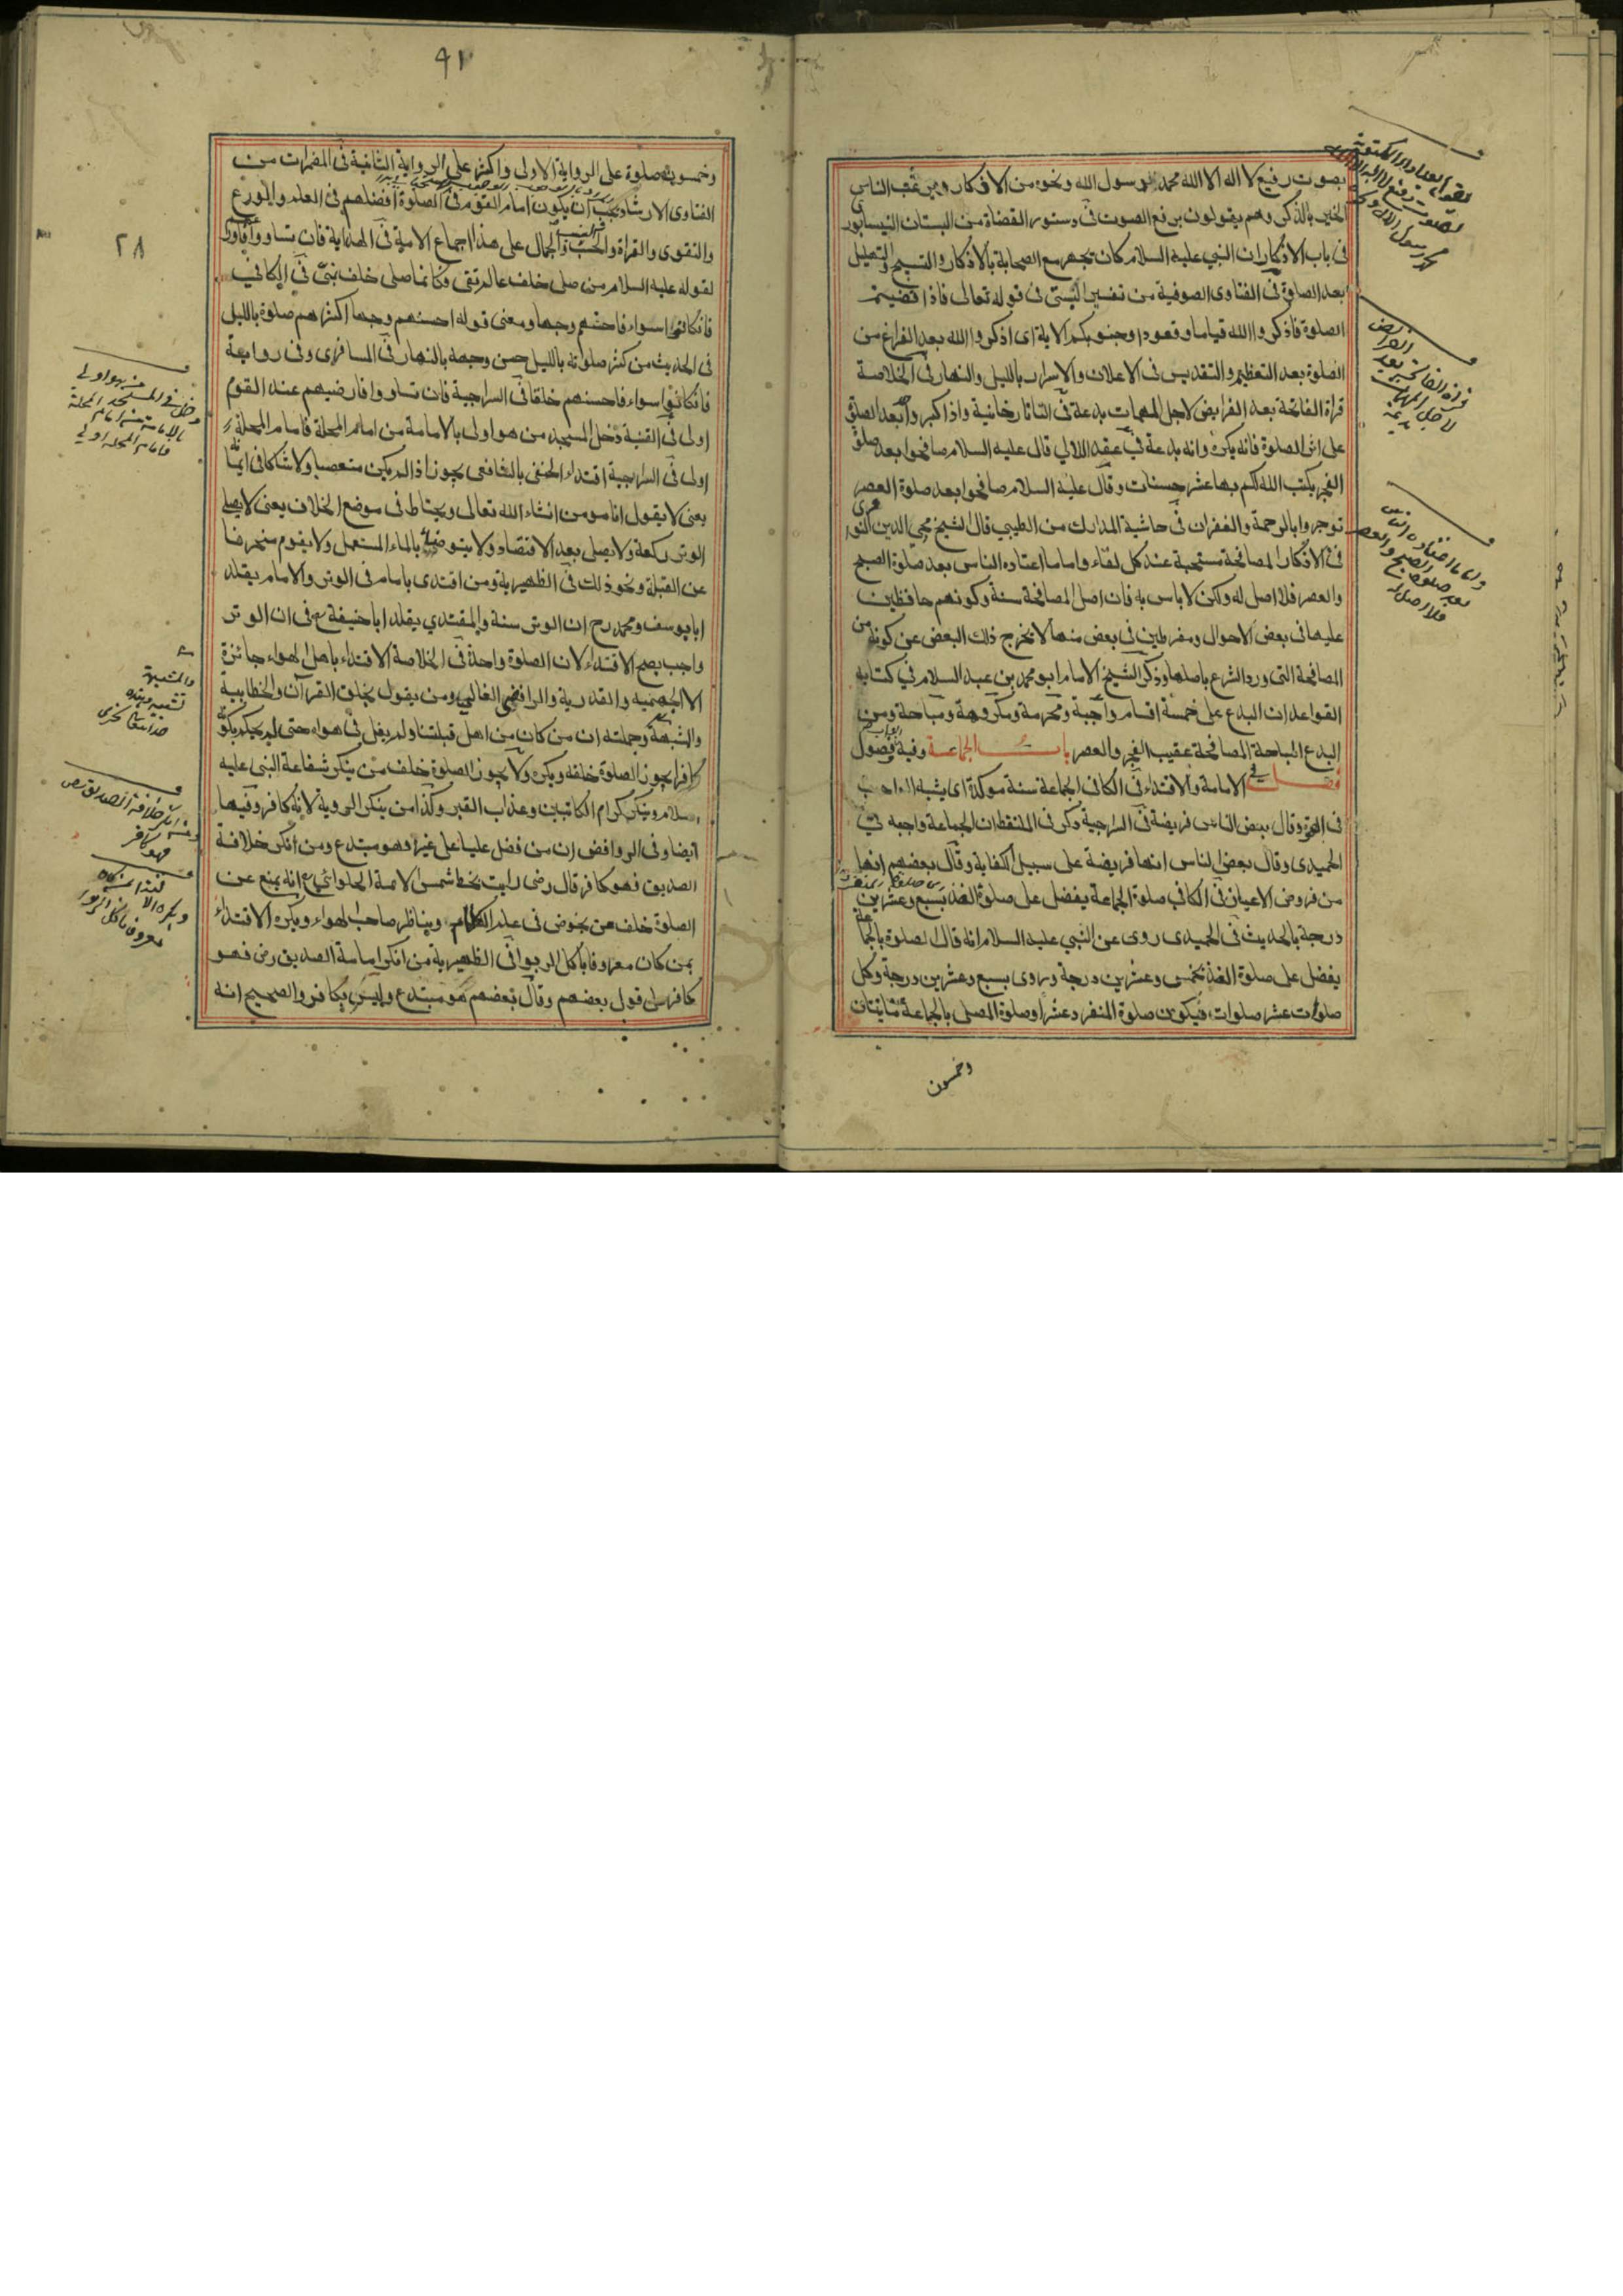 بصوت رفيع لا اله الا الله محمد رسول الله ونحوه من الاذكار ومن تعقب الناس
الخير بالذكر وهم يقولون برفع الصوت في دستور القضاة من البستان النيسابور
في باب الاذكار ان النبي عليه السلام كان يجهر مع الصحابة بالاذكار والتسبيح والتهليل
بعد الصلوة في الفتاوى الصوفية من تفسير البستي في قوله تعالى فاذا قضيتم
الصلوة فاذكروا الله قياما وقعودا وجنوبكم الاية اى اذكروا الله بعد الفراغ من
الصلوة بعد التعظيم والتقديس في الاعلان والاسرار بالليل والنهار في الخلاصة
قراة الفاتحة بعد الفرايض لاجل المهمات بدعة في التاتارخانية واذا كبروا بعد الصلوة
على اثر الصلوة فانه يكره وانه بدعة في عقد اللالي قال عليه السلام صافحوا بعد صلوة
الفجر يكتب الله لكم بها عشر حسنات وقال عليه السلام صافحوا بعد صلوة العصر
توجروا بالرحمة والغفران في حاشية المدارك من الطيبي قال الشيخ محي الدين النووى
في الاذكار المصافحة مستحبة عند كل لقاء واما ما اعتاده الناس بعد صلوة الصبح
والعصر فلا اصل له ولكن لا باس به فان اصل المصافحة سنة وكونهم حافظين
عليها في بعض الاحوال ومفرطين في بعض منها لا يخرج ذلك البعض عن كونه من
المصافحة التى ورد الشرع باصلها وذكر الشيخ الامام ابو محمد بن عبد السلام في كتابه
القواعد ان البدع على خمسة اقسام واجبة ومحرمة ومكروهة ومباحة ومن
البدع المباحة المصافحة عقيب الفجر والعصر باب الجماعة وفيه فصول
فصل في الامامة والاقتداء في الكافي الجماعة سنة موكدة اى يشبه الواجب
في القوة وقال بعض الناس فريضة في السراجية وذكر في الملتقط ان الجماعة واجبة في
الحميدى وقال بعض الناس انها فريضة على سبيل الكفاية وقال بعضهم انها
من فروض الاعيان في الكافي صلوة الجماعة يفضل على صلوة الفذ بسبع وعشرين
درجة بالحديث في الحميدى روى عن النبي عليه السلام انه قال الصلوة بالجماعة
يفضل على صلوة الفذ بخمس وعشرين درجة وروى بسبع وعشرين درجة وكل
صلوات عشر صلوات فيكون صلوة المنفرد عشرا وصلوة المصلى بالجماعة مائتان
وخمسون
قراة الفاتحة بعد الفرائض
لاجل المهمات
بدعة
واما ما اعتاده الناس
بعد صلوة الصبح والعصر
فلا اصل له
٤١
٢٨
وخمسون صلوة على الرواية الاولى واكثر على الرواية الثانية في المضمرات من
الفتاوى الارشاد يجب ان يكون امام القوم في الصلوة افضلهم في العلم والورع
والتقوى والقراة والحسب والجمال على هذا اجماع الامة في الهداية فان تساووا فاورعهم
لقوله عليه السلام من صلى خلف عالم تقى وكانما صلى خلف نبي في الكافي
فانكانوا سواء فاحسنهم وجها ومعنى قوله احسنهم وجها اكثرهم صلوة بالليل
في الحديث من كثر صلوته بالليل حسن وجهه بالنهار في المسافرى وفى رواية
فانكانوا سواء فاحسنهم خلقا في السراجية فان تساووا فارضيهم عند القوم
اولى في القنية دخل المسجد من هو اولى بالامامة من امام المحلة فامام المحلة
اولى في السراجية اقتداء الحنفى بالشافعى يجوز اذا لم يكن متعصبا ولا شاكا في ايمانه
يعنى لا يقول انا مومن انشاء الله تعالى ويحتاط في موضع الخلاف يعنى لا يصلى
الوتر ركعة ولا يصلى بعد الافتصاد ولا يتوضئ بالماء المستعمل ولا يقوم منحرفا
عن القبلة ونحو ذلك في الظهيرية ومن اقتدى بامام في الوتر والامام يقلد
ابا يوسف ومحمد رح ان الوتر سنة والمقتدي يقلد ابا حنيفة رح في ان الوتر
واجب يصح الاقتداء لان الصلوة واحدة في الخلاصة الاقتداء باهل الهواء جائزة
الا الجهمية والقدرية والرافضي الغالي ومن يقول بخلق القرآن والخطابية
والمشبهة وجملته ان من كان من اهل قبلتنا ولم يغل في هواه حتى لم يحكم بكونه
كافرا يجوز الصلوة خلفه ويكره ولا يجوز الصلوة خلف من ينكر شفاعة النبى عليه
السلام وينكر كرام الكاتبين وعذاب القبر وكذا من ينكر الروية لانه كافر وفيها
ايضا وفى الروافض ان من فضل عليا على غيره فهو مبتدع ومن انكر خلافة
الصديق فهو كافر قال رضى رايت بخط شمس الائمة الحلوائي رح انه يمنع عن
الصلوة خلف من يخوض في علم الكلام ويناظر صاحب الهواء ويكره الاقتداء
بمن كان معروفا باكل الربوا في الظهيرية من انكر امامة الصديق رض فهو
كافر على قول بعضهم وقال بعضهم هو مبتدع وليس بكافر والصحيح انه
دخل في المسجد من هو اولى
بالامامة من امام المحلة
فامام المحلة اولى
والمشبهة
ومن انكر خلافة الصديق رض
فهو كافر
ويكره الاقتداء
معروفا باكل الربوا